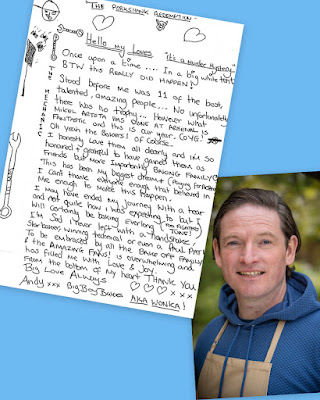 THE PORKSHANK REDEMPTION
Hello My Loves
"It's a Murder Mystery"
THE MECHANIC
Once upon a time.... In a big white tent
BTW this REALLY DID HAPPEN
Stood before me was 11 of the best,
talented, amazing people... No unfortunately
there was no trophy... However what
Mikel Arteta has done at ARSENAL is
Fantastic and this is our year. COYG!
Oh yeah the Bakers! Of course.
I honestly love them all dearly and I'm so
honoured & grateful to have gained them as
Friends but more importantly BAKING FAMILY
This has been my biggest dream &
I can't thank everyone enough that believed in
Me enough to make this happen.
I may have ended my journey with a tear
and not quite how I was expecting to but I
Will certainly be baking Everlong (FOO FIGHTERS TUNE!)
I'm sad I never left with a Handshake,
Star baker, winning technical or even a Paul
To be embraced by all the BAKE OFF FAMILY
& the AMAZING FANS! is overwhelming and
has filled me with Love & Joy.
From the bottom of my heart THANK YOU
Big Love Always
Andy xxx Big Boy Bakes xxx
AKA WONKA!